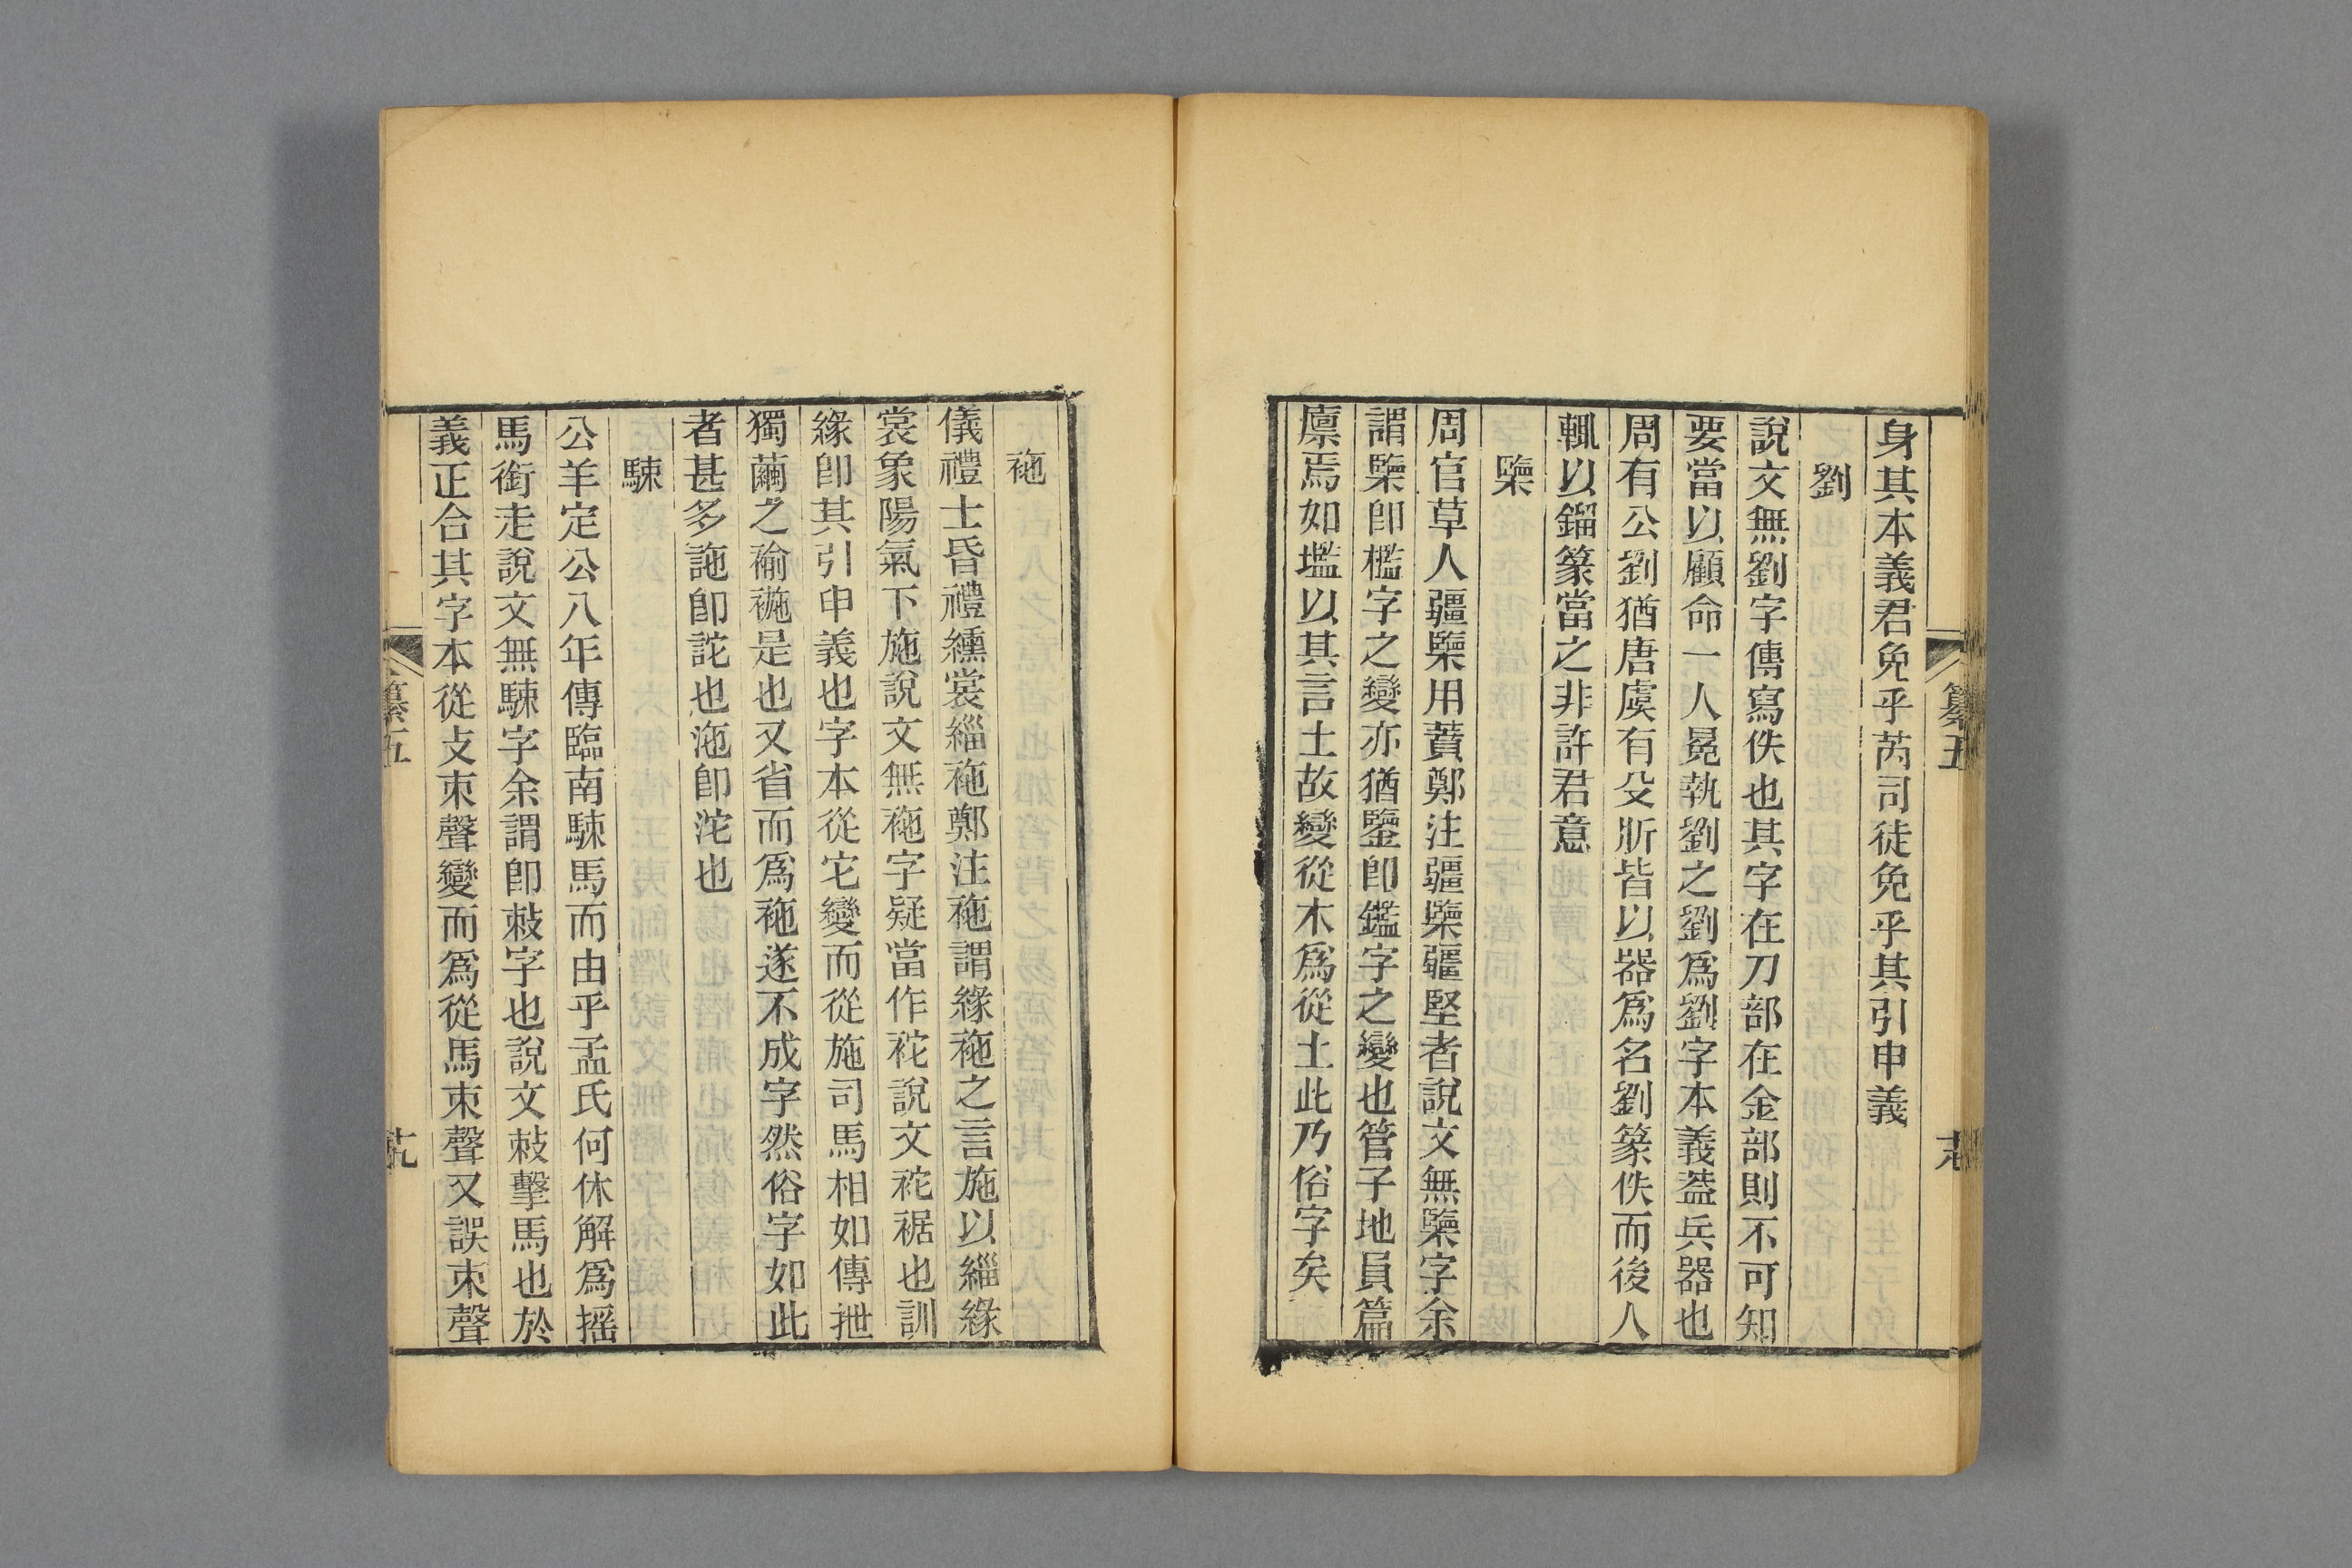 身其本義君免乎苪司徒免乎其引申義
劉
說文無劉字傳寫佚也其字在刀部在金部則不可知
要當以顧命一人冕執劉之劉爲劉字本義葢兵器也
周有公劉猶唐虞有殳斨皆以器爲名劉篆佚而後人
輒以鎦篆當之非許君意
㯺
周官草人疆㯺用蕡鄭注疆㯺疆堅者說文無㯺字余
謂㯺卽檻字之變亦猶鑒卽鑑字之變也管子地員篇
廪焉如壏以其言土故變從木爲從土此乃俗字矣
袘
儀禮士昏禮纁裳緇袘鄭注袘謂緣袘之言施以緇緣
裳象陽氣下施說文無袘字疑當作袉說文袉裾也訓
緣卽其引申義也字本從它變而從施司馬相如傳抴
獨繭之褕䙾是也又省而爲袘遂不成字然俗字如此
者甚多訑卽詑也池卽沱也
駷
公羊定公八年傳臨南駷馬而由乎孟氏何休解爲摇
馬銜走說文無駷字余謂卽敇字也說文敇擊馬也於
義正合其字本從攴朿聲變而爲從馬朿聲又誤束聲
纂五